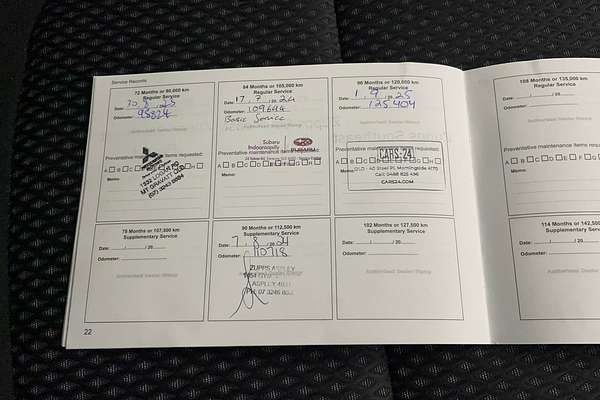 Service Records
72 Months or 90,000 km
Regular Service
Date: 30 . 8 . 20
Odometer: 95824
Authorised Dealer Stamp
Preventative maintenance items requested:
A B C D E F G H
Memo:
MITSUBISHI
MT GRAVATT QLD
84 Months or 105,000 km
Regular Service
Date: 17 . 7 . 2024
Odometer: 109644
Basic Service
Authorised Dealer Stamp
Subaru
Indooroopilly
SUBARU
Preventative maintenance items requested:
A B C D E F G H
Memo:
96 Months or 120,000 km
Regular Service
Date: 1 . 9 . 2025
Odometer: 125404
Authorised Dealer Stamp
Preventative maintenance items requested:
CARS 24
QLD - 40 Steel Pl, Morningside 4170
Call: 0488 825 496
CARS24.COM
108 Months or 135,000 km
Regular Service
Date: / / 20
Odometer:
Authorised Dealer Stamp
Preventative maintenance items
A B C D E
Memo:
78 Months or 107,500 km
Supplementary Service
Date: / / 20
Odometer:
Authorised Dealer Stamp
90 Months or 112,500 km
Supplementary Service
Date: 7 . 8 . 2024
Odometer: 110718
ZUPPS ASPLEY
ASPLEY
102 Months or 127,500 km
Supplementary Service
Date: / / 20
Odometer:
Authorised Dealer Stamp
114 Months or 142,500
Supplementary Service
Date: / / 20
Odometer:
Authorised Dealer Stamp
22